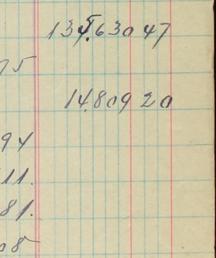 135.63047
75
14.80920
94
11.
81.
08